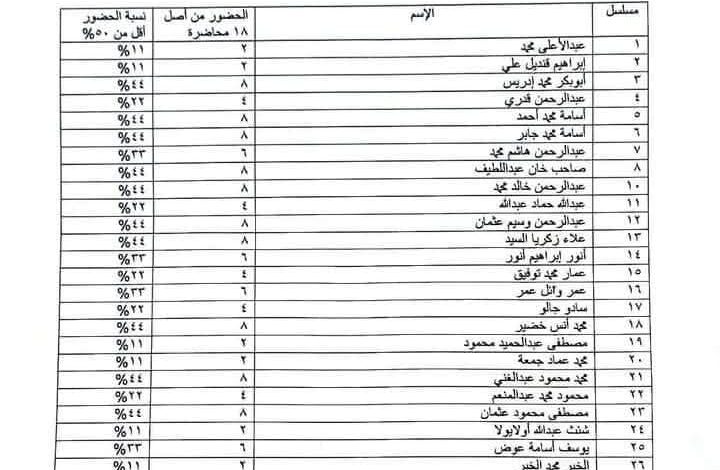 مسلسل الإسم الحضور من أصل ١٨ محاضرة نسبة الحضور أقل من ٥٠%
١ عبدالأعلى محمد ٢ ١١%
٢ إبراهيم قنديل علي ٢ ١١%
٣ أبوبكر محمد إدريس ٨ ٤٤%
٤ عبدالرحمن قدري ٤ ٢٢%
٥ أسامة محمد أحمد ٨ ٤٤%
٦ أسامة محمد جابر ٨ ٤٤%
٧ عبدالرحمن هاشم محمد ٦ ٣٣%
٨ صاحب خان عبداللطيف ٨ ٤٤%
١٠ عبدالرحمن خالد محمد ٨ ٤٤%
١١ عبدالله حماد عبدالله ٤ ٢٢%
١٢ عبدالرحمن وسيم عثمان ٨ ٤٤%
١٣ علاء زكريا السيد ٨ ٤٤%
١٤ أنور إبراهيم أنور ٦ ٣٣%
١٥ عمار محمد توفيق ٤ ٢٢%
١٦ عمر وائل عمر ٦ ٣٣%
١٧ سادو جالو ٤ ٢٢%
١٨ محمد أنس خضير ٨ ٤٤%
١٩ مصطفى عبدالحميد محمود ٢ ١١%
٢٠ محمد عماد جمعة ٢ ١١%
٢١ محمد محمود عبدالغني ٨ ٤٤%
٢٢ محمود محمد عبدالمنعم ٤ ٢٢%
٢٣ مصطفى محمود عثمان ٨ ٤٤%
٢٤ شنث عبدالله أولابولا ٢ ١١%
٢٥ يوسف أسامة عوض ٦ ٣٣%
٢٦ الخير محمد الخير ٢ ١١%